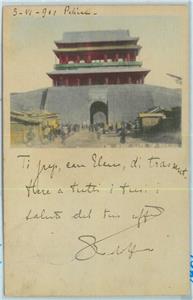 3-VI-901 Pekino.
Ti prego, cara Elena, di trasmet.
tere a tutti i tuoi i
saluti del tuo aff